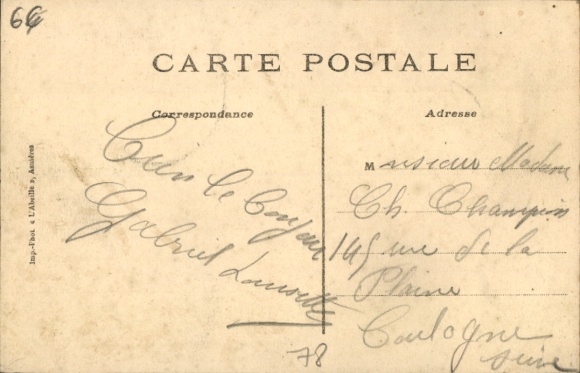 66
CARTE POSTALE
Correspondance
Adresse
Imp.-Phot. « L'Abeille », Asnières
Gabriel
Monsieur Madame
Ch. Champion
145 rue de la
Plaine
Coulogne
Seine
78